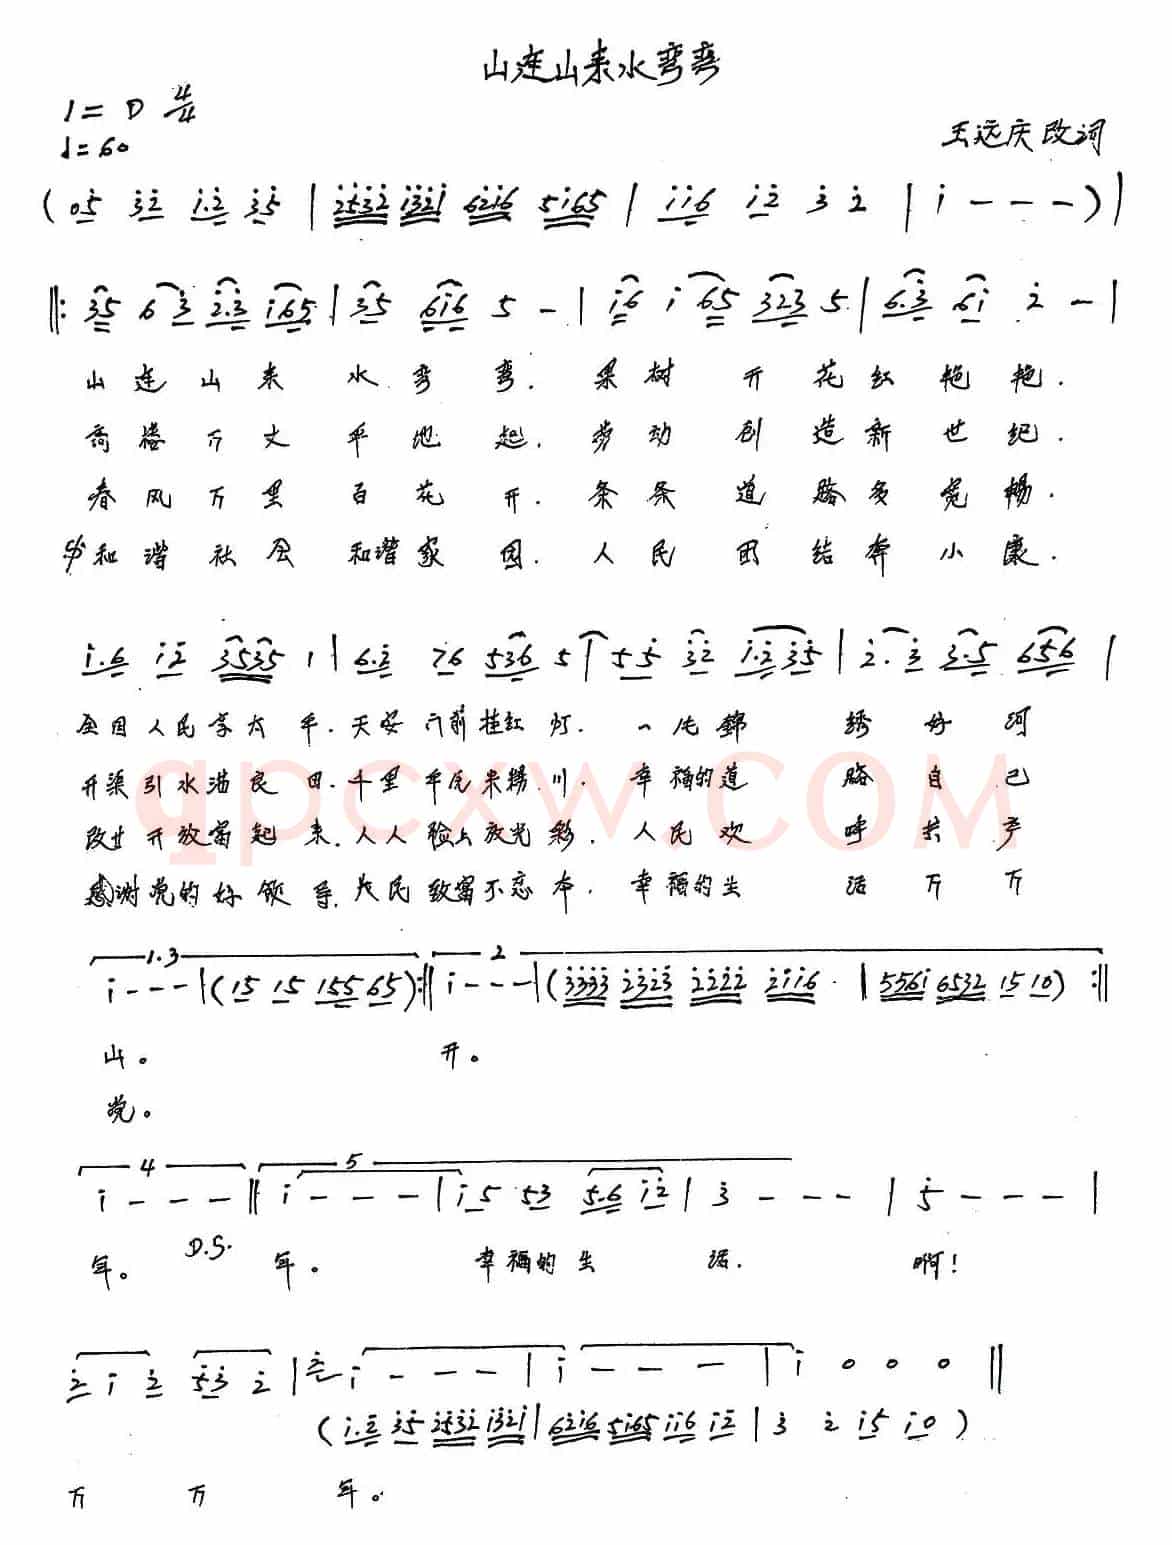 山连山来水弯弯
1=D 4/4
♩=60
王远庆改词
(05 32 1.2 35 | 2532 1321 6216 5165 | 116 12 3 2 | 1 - - - ) |
‖: 35 63 2.3 165 | 35 616 5 - | 16 1 65 323 5 | 6.3 61 2 - |
山连山来水弯弯.果树开花红艳艳.
高楼万丈平地起.劳动创造新世纪.
春风万里百花开.条条道路多宽畅.
中和谐社会和谐家园.人民团结奔小康.
1.6 12 3535 1 | 6.2 76 536 5 | 55 32 1.2 35 | 2.3 3.5 656 |
全国人民享太平.天安门前挂红灯.一片锦绣好河
开渠引水满良田.千里平原米粮川.幸福的道路自己
改廿开放富起来.人人脸上放光彩.人民欢呼共产
感谢党的好领导.人民致富不忘本.幸福的生活万万
1.3 2
1 - - - | (15 15 155 65) :‖ 1 - - - | (3333 2323 2222 2116 | 5561 6532 15 10) :‖
山。 开。
党。
4 5
1 - - - ‖ 1 - - - | 15 53 5.6 12 | 3 - - - | 5 - - - |
年。 D.S. 年。 幸福的生活. 啊!
2 1 2 53 2 | 2 1 - - - | 1 - - - | 1 0 0 0 ‖
(1.2 35 2532 1321 | 6216 5165 116 12 | 3 2 15 10 )
万 万 年。
qpcxw.com